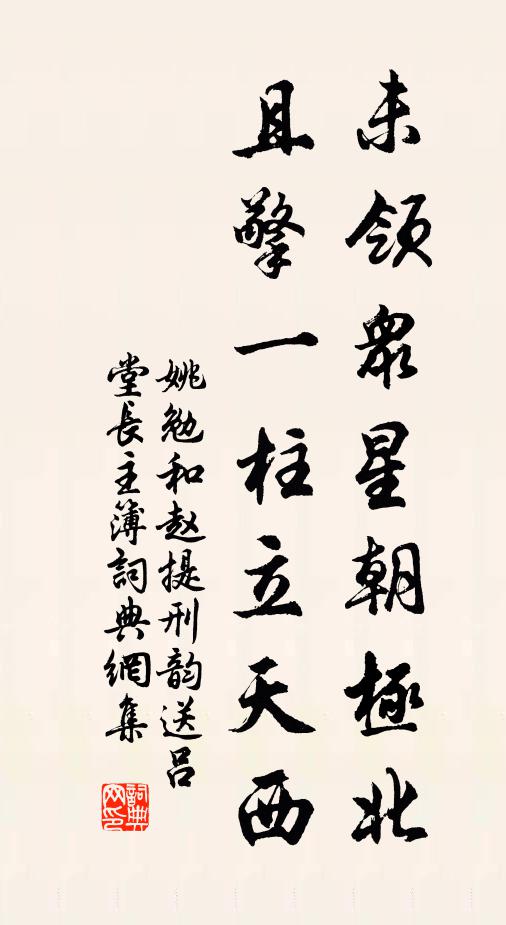 未領衆星朝極北
且擎一柱立天西
姚勉和赵提刑韵送呂
堂長主簿詞典網集
詞典网印